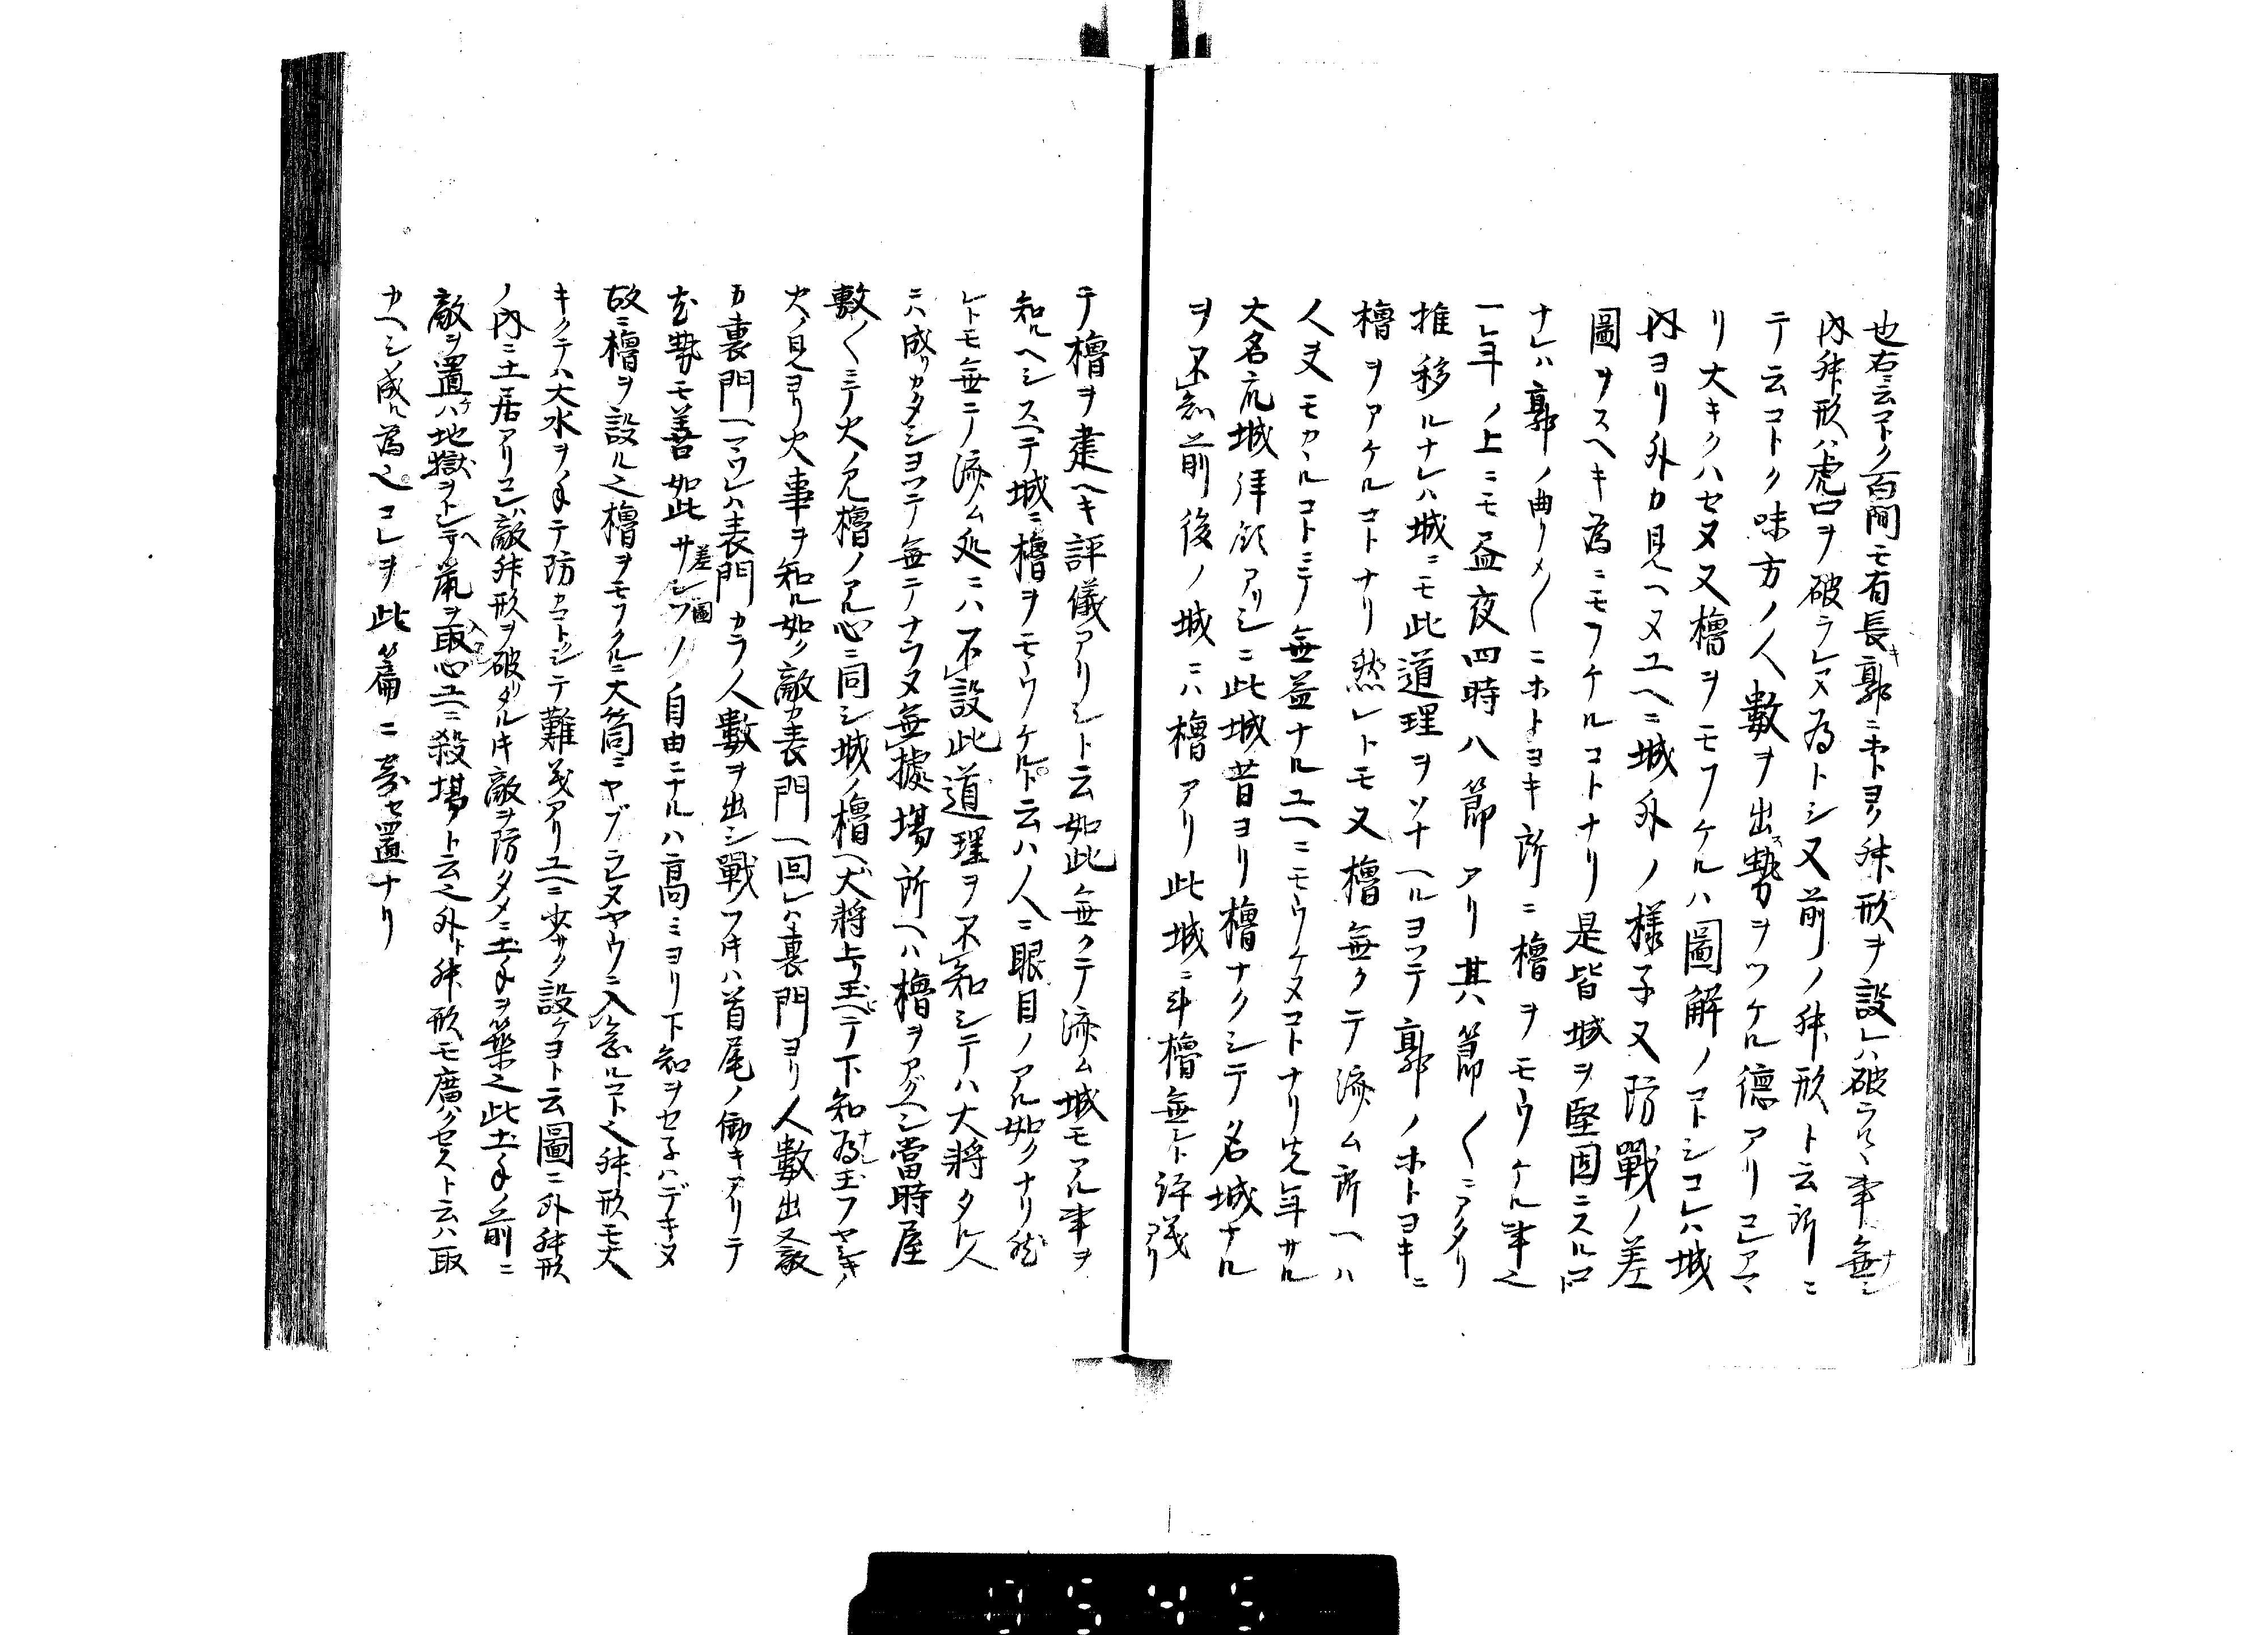 也右ニ云コトク百間モ有長キ郭ニホトヨク舛形ヲ設レハ破ラルヽ事無シ
内舛形ハ虎口ヲ破ラレヌ為トシ又前ノ舛形ト云所ニ
テ云コトク味方ノ人數ヲ出勢ヲツケル德アリコレアマ
リ大キクハセヌ又櫓ヲモフケルハ圖解ノコトシコレハ城
内ヨリ外カ見ヘヌユヘニ城外ノ樣子又防戰ノ差
圖ヲスヘキ為ニモフケルコトナリ是皆城ヲ堅固ニスル
ナレハ郭ノ曲リメ〳〵ニホトヨキ所ニ櫓ヲモウケル事也
一年ノ上ニモ昼夜四時八節アリ其節〳〵ニアタリ
推移ルナレハ城ニモ此道理ヲソナヘルヨツテ郭ノホトヨキニ
櫓ヲアケルコトナリ然レトモ又櫓無クテ濟ム所ヘハ
人夫モカヽルコトニテ無益ナルユヘニモウケヌコトナリ先年サル
大名城拜領アリシニ此城昔ヨリ櫓ナクシテ名城ナル
ヲ不知前後ノ城ニハ櫓アリ此城ニ斗櫓無シト評議アリ
テ櫓ヲ建ヘキ評儀アリシト云如此無クテ濟ム城モアル事ヲ
知ルヘシスヘテ城ニ櫓ヲモウケルト云ハ人ニ眼目ノアル如クナリ然
レトモ無ニテ濟ム処ニハ不設此道理ヲ不知シテハ大將タル人
ニハ成リカタシヨツテ無ニテナラヌ無據場所ヘハ櫓ヲアグヘシ當時屋
敷〳〵ニテ火ノ見櫓ノアル心ニ同シ城ノ櫓ヘ大將上リ玉ヒテ下知ナシ玉フ
火ノ見ヨリ火事ヲ知ル如ク敵カ表門ヘ回レハ裏門ヨリ人數出又敵
カ裏門ヘマワレハ表門カラ人數ヲ出シ戰フ片ハ首尾ノ働キアリテ
勢モ善如此サシツノ自由ニナルハ高ミヨリ下知ヲセ子ハデキヌ
差圖
故ニ櫓ヲ設ル也櫓ヲモフクルニ大筒ニヤブラレヌヤウニ入念ルコト也舛形モ大
キクテハ大水ヲノ手テ防カコトクシテ難義アリユヘニ少サク設ケヨト云圖ニ外舛形
ノ内ニ土居アリコレハ敵舛形ヲ破リタル片敵ヲ防クタメニ土手ヲ築也此土手ノ前ニ
敵ヲ置ケハ地獄ヲトシテ鼠ヲ取心ユヘニ殺場ト云也外ト舛形モ廣ハクセスト云ハ取
カヘシ成ル為也コレヲ此篇ニ寄セ置ナリ